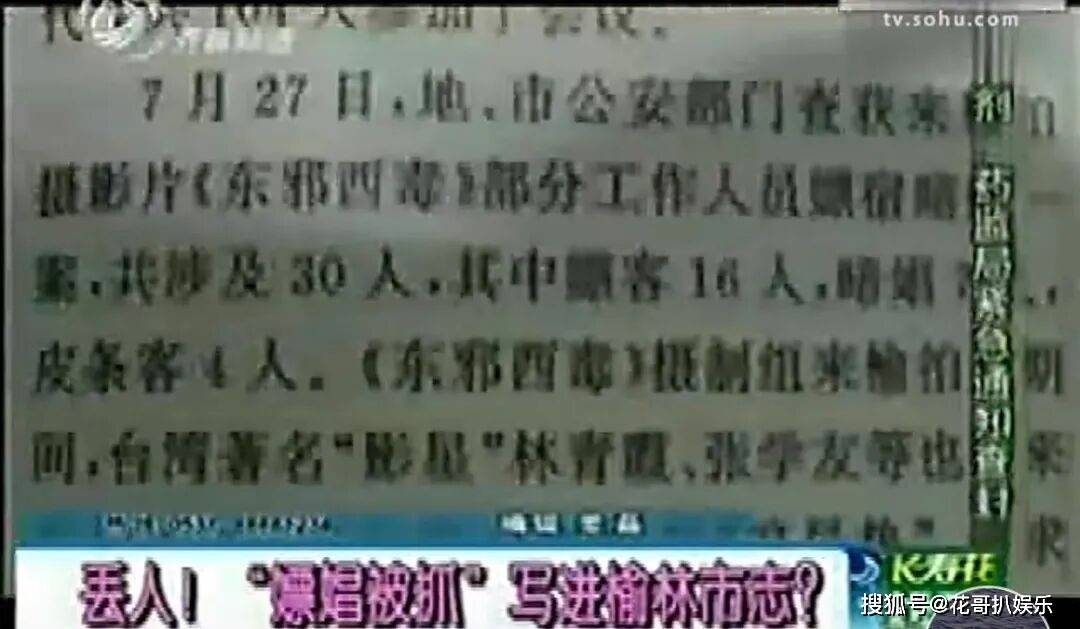 tv.sohu.com
7月27日，地、市公安部门查获来
摄影片《东邪西毒》部分工作人员嫖宿暗
案，共涉及30人，其中嫖客16人，暗娼
皮条客4人。《东邪西毒》摄制组来榆拍 期
间，台湾著名“影星”林青霞、张学友等也 来
药监局紧急通知官
编辑
丢人！“嫖娼被抓”写进榆林市志？
长寿花
搜狐号@花哥扒娱乐